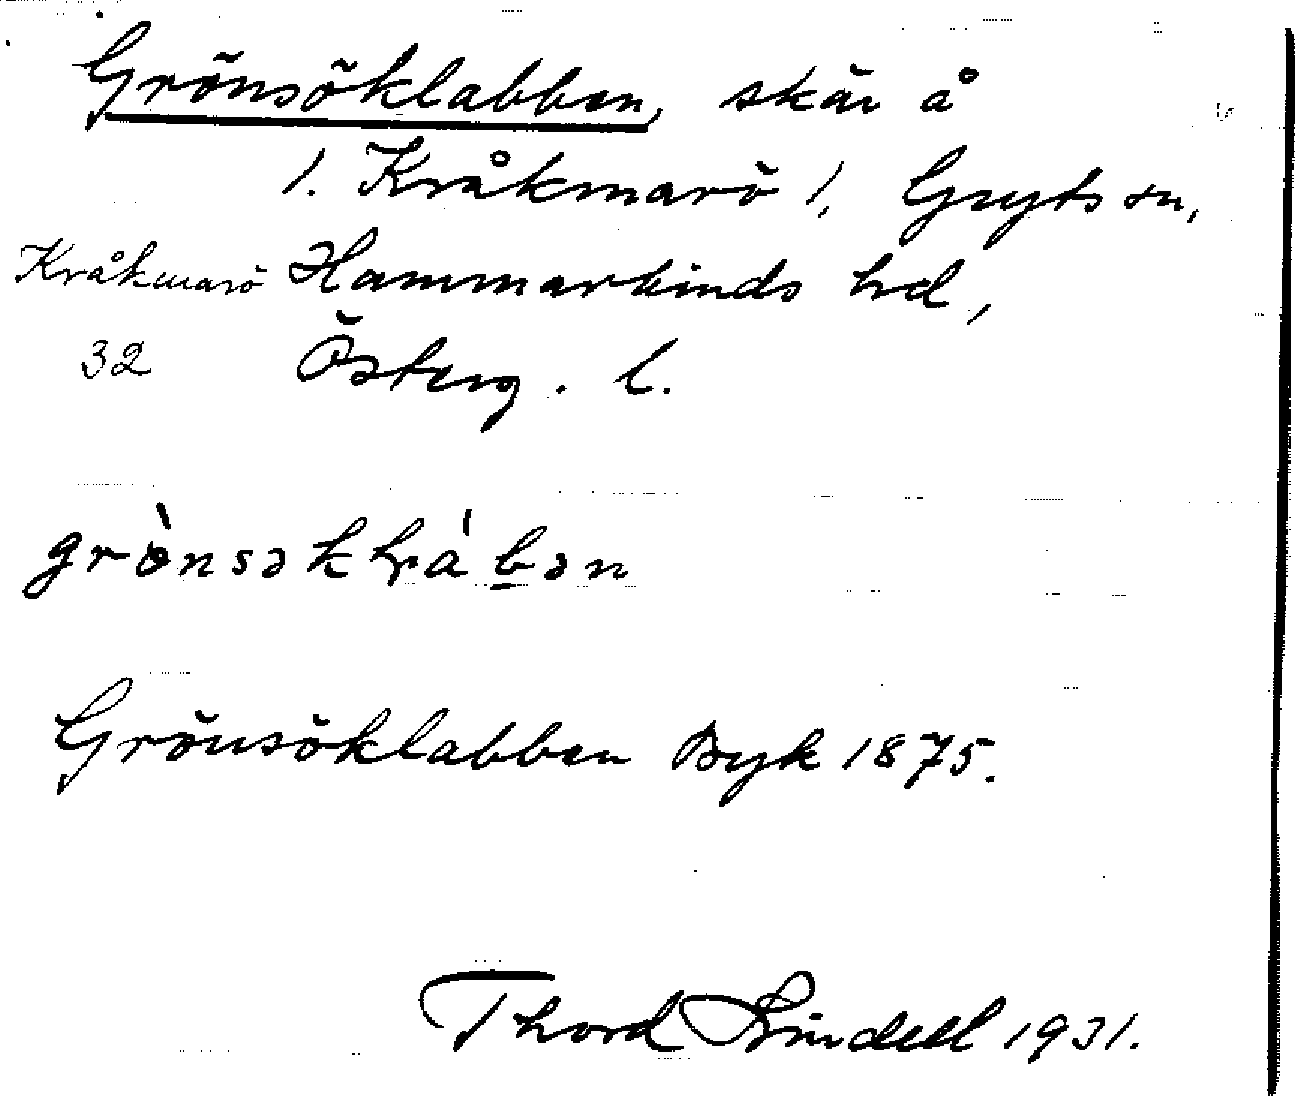 Grönsöklabben, skär å
1. Kråkmarö 1, Gryts sn,
Kråkmarö Hammarkinds hd,
32 Österg. l.
grò̀nsəkḷábən
Grönsöklabben Byk 1875.
Thord Lindell 1931.